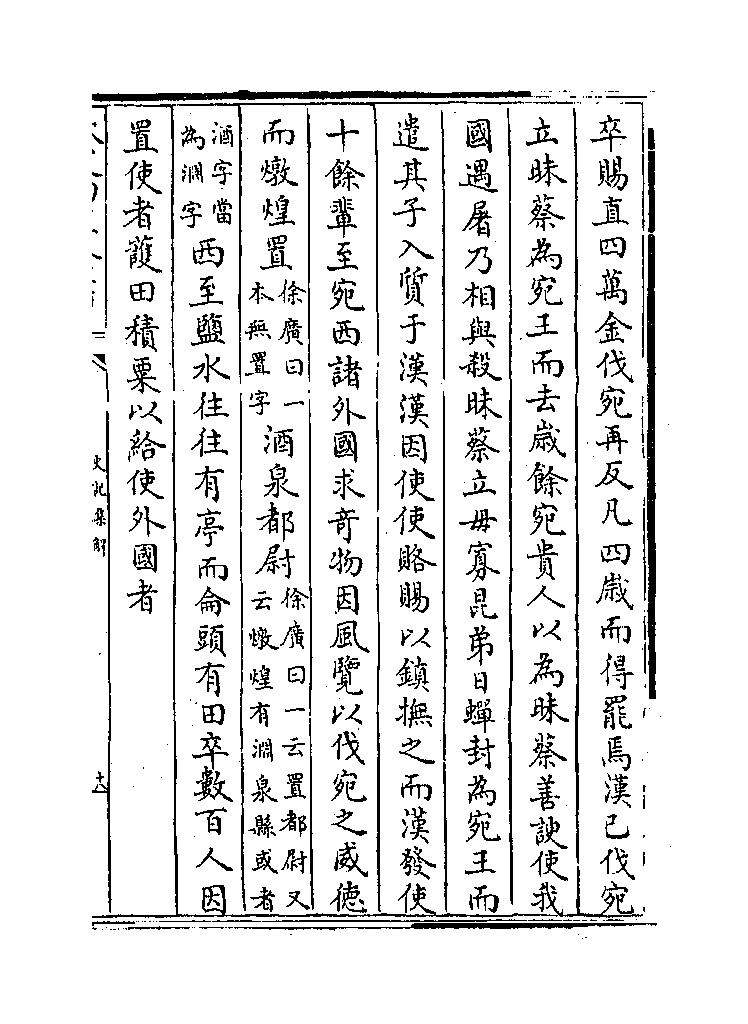 卒賜直四萬金伐宛再反凡四歲而得罷焉漢已伐宛
立昧蔡為宛王而去歲餘宛貴人以為昧蔡善諛使我
國遇屠乃相與殺昧蔡立毋寡昆弟曰蟬封為宛王而
遣其子入質于漢漢因使使賂賜以鎮撫之而漢發使
十餘輩至宛西諸外國求竒物因風覽以伐宛之威德
而燉煌置徐廣曰一本無置字酒泉都尉徐廣曰一云置都尉又云燉煌有淵泉縣或者
酒字當為淵字西至鹽水往往有亭而侖頭有田卒數百人因
置使者䕶田積粟以給使外國者
史記集解